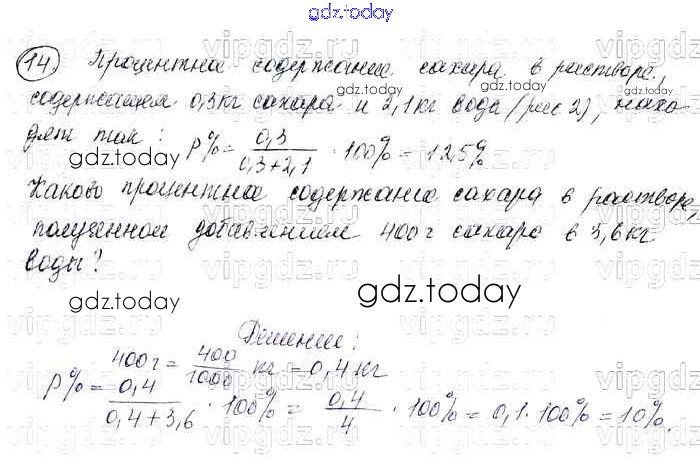 gdz.today
14. Процентна содержание сахара в растворе,
содержащем 0,3кг сахара и 2,1кг воды (рис 2), нахо
дят так: P% = 0,3 / 0,3+2,1 · 100% = 12,5%
gdz.today
gdz.today
Каково процентна содержание сахара в растворе,
полученном добавлением 400г сахара в 3,6кг
воды?
gdz.today
gdz.today
Решение:
400г = 400/1000 кг = 0,4кг
P% = 0,4 / 0,4+3,6 · 100% = 0,4 / 4 · 100% = 0,1 · 100% = 10%.